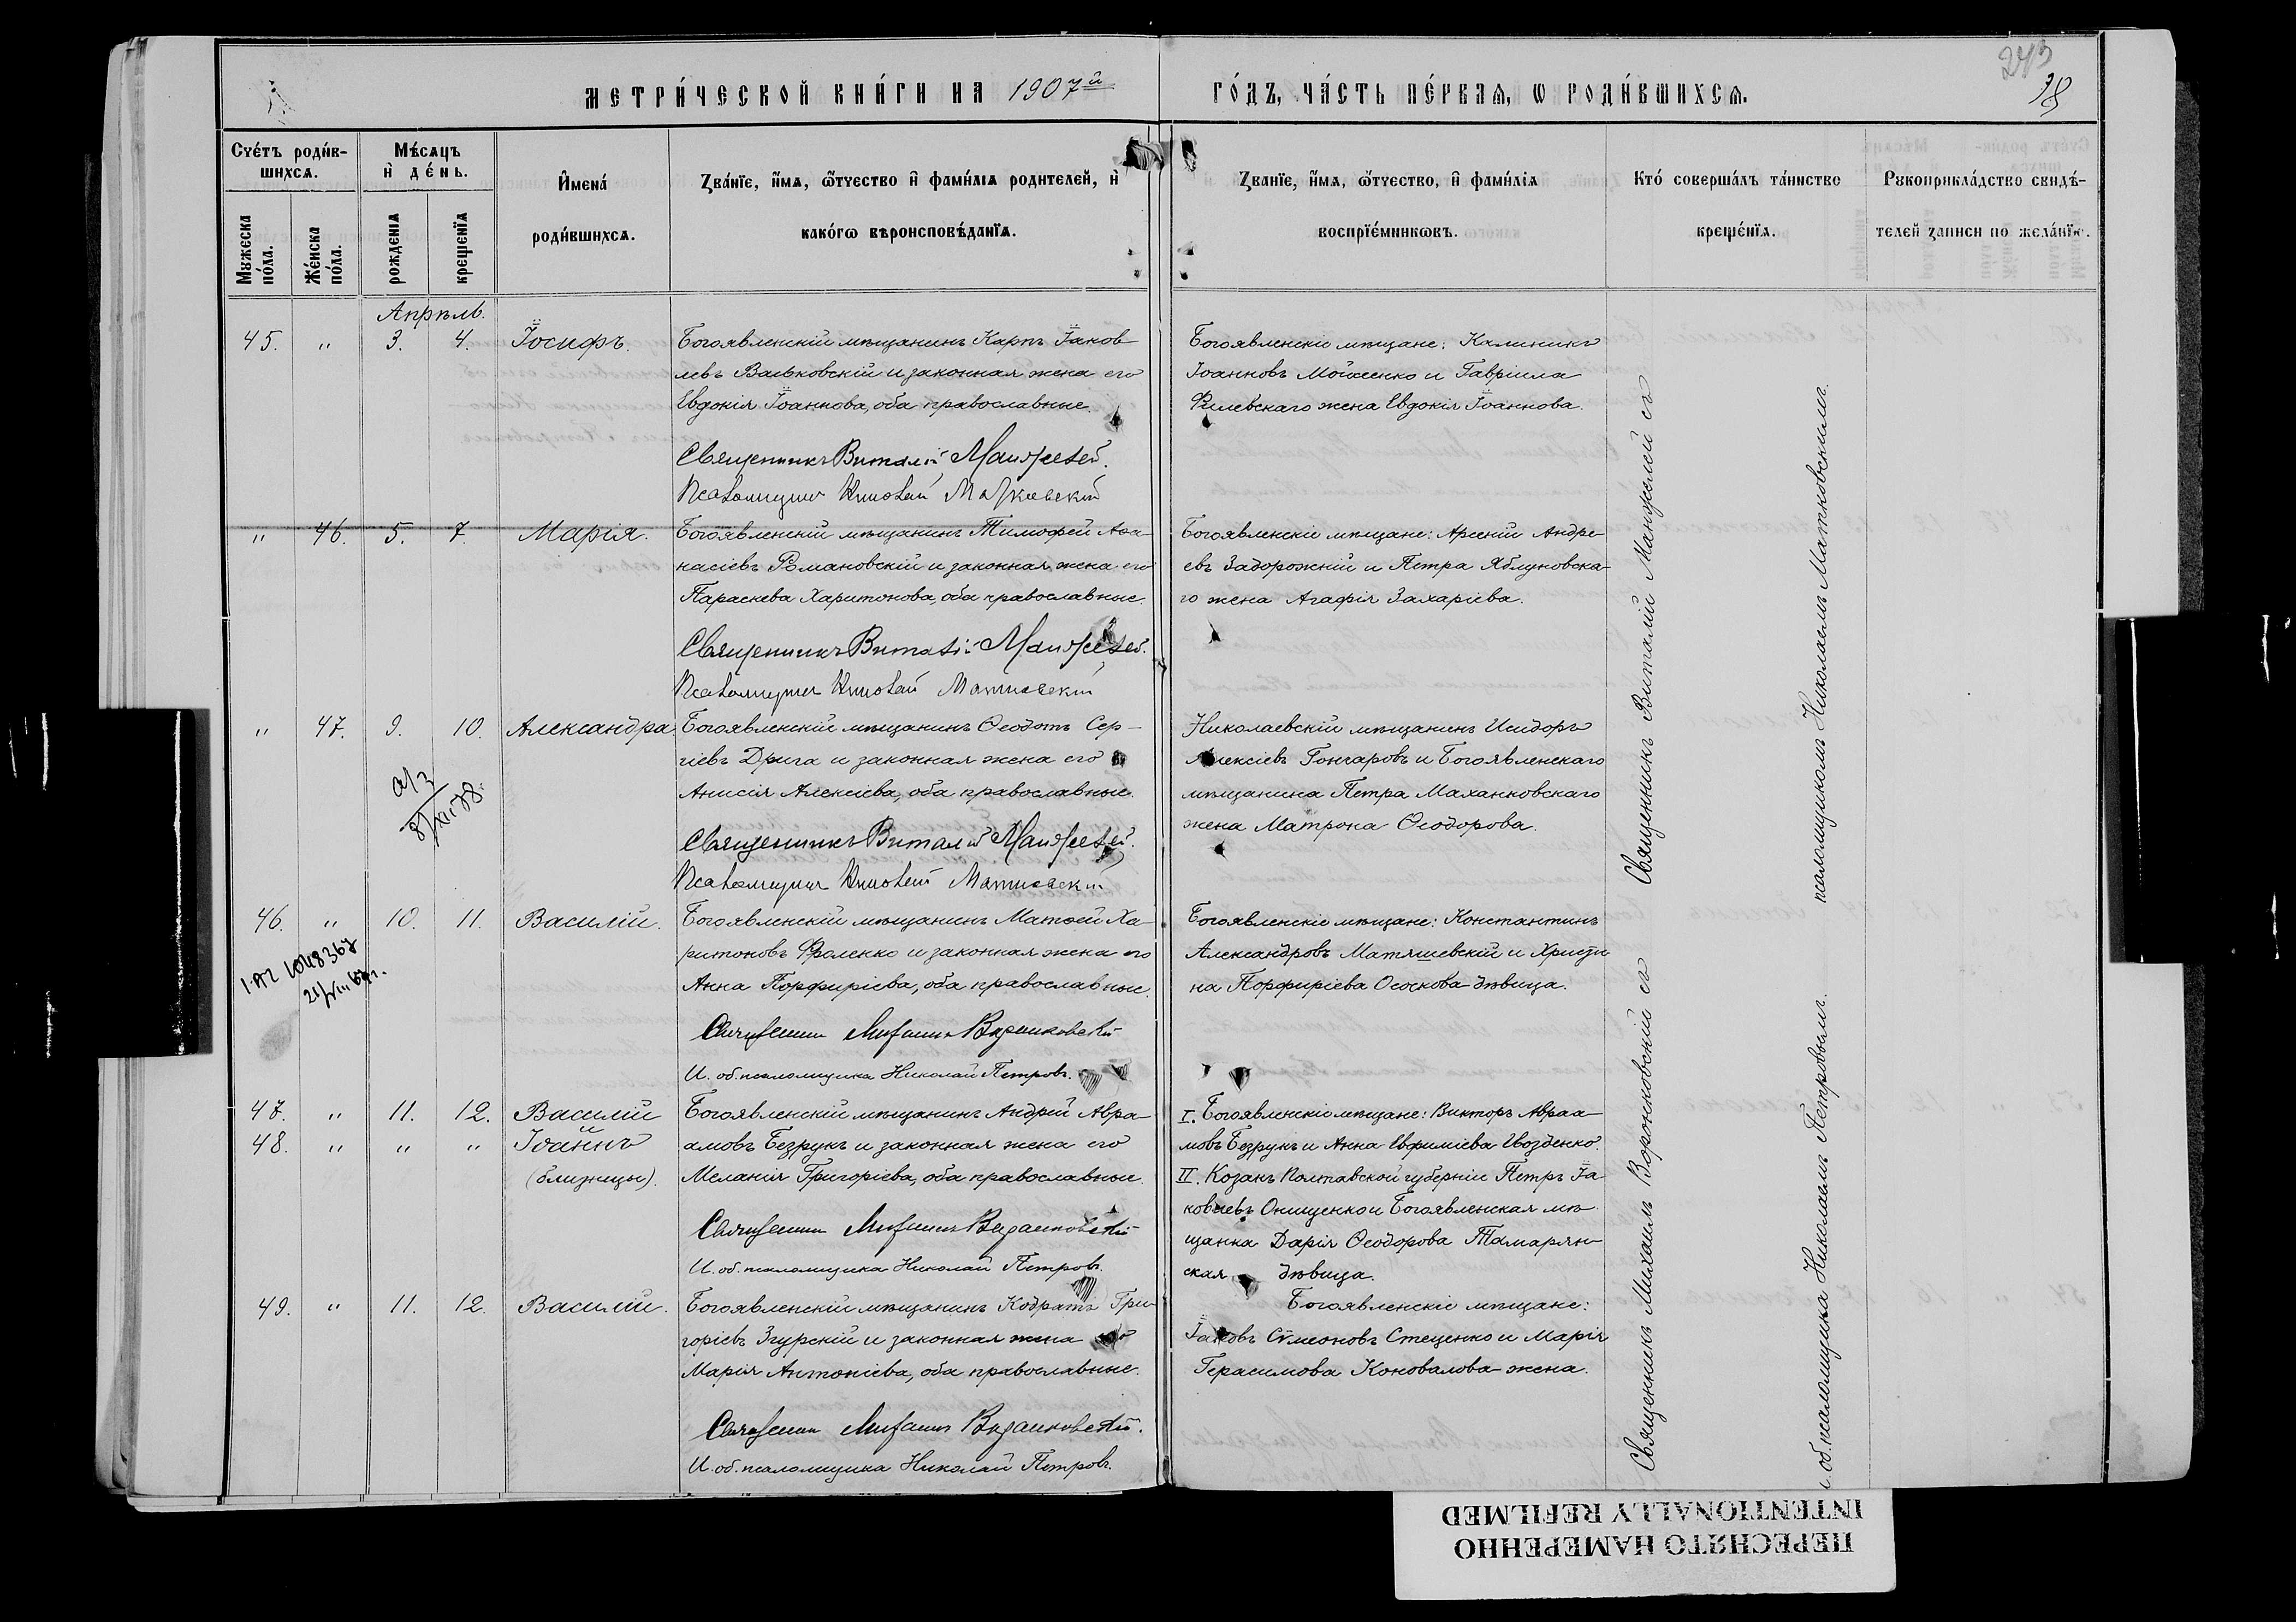 МЕТРИ́ЧЕСКОЙ КНИ́ГИ НА 1907й
ГО́ДЪ, ЧА́СТЬ ПЕ́РВАѦ, Ѡ РОДИ́ВШИХСѦ.
243
Счє́тъ роди́в-
шихсѧ.
Мужеска
по́ла.
Же́нска
по́ла.
Мѣ́сѧцъ
и҆ де́нь.
рожденїѧ
крещенїѧ
И҆мена́
роди́вшихсѧ.
Зва́нїе, и҆́мѧ, ѻ҆́тчество и҆ фами́лїѧ родителей, и҆
како́гѡ вѣроисповѣ́данїѧ.
Зва́нїе, и҆́мѧ, ѻ҆́тчество, и҆ фами́лїѧ
воспрїе́мниковъ.
Кто́ соверша́лъ та́инство
креще́нїѧ.
Рукоприкла́дство свидѣ́-
телей записи по жела́нїю.
Апрѣль.
45. " 3. 4. Іосифъ.
Богоявленскій мѣщанинъ Карпъ Іаков-
левъ Вальковскій и законная жена его
Евдокія Іоаннова, оба православные.
Священникъ Виталій Манжелей.
Псаломщикъ Николай
Богоявленскіе мѣщане: Калиникъ
Іоанновъ Мойсеенко и Гавріила
Филевскаго жена Евдокія Іоаннова.
" 46. 5. 7. Марія.
Богоявленскій мѣщанинъ Тимофей Аѳа-
насіевъ Романовскій и законная жена его
Параскева Харитонова, оба православные.
Священникъ Виталій Манжелей.
Псаломщикъ Николай Матковскій
Богоявленскіе мѣщане: Арсеній Андре-
евъ Задорожній и Петра Яблуновска-
го жена Агафія Захаріева.
" 47. 9. 10. Александра
Богоявленскій мѣщанинъ Ѳеодотъ Сер-
гіевъ Дрига и законная жена его
Анисія Алексіева, оба православные.
Священникъ Виталій Манжелей.
Псаломщикъ Николай Матковскій
Николаевскій мѣщанинъ Исидоръ
Алексіевъ Гончаровъ и Богоявленскаго
мѣщанина Петра Маханковскаго
жена Матрона Ѳеодорова.
46. " 10. 11. Василій.
Богоявленскій мѣщанинъ Матѳей Ха-
ритоновъ Фроленко и законная жена его
Анна Порфиріева, оба православные.
Священникъ Михаилъ Воронковскій
И. об. псаломщика Николай Петровъ.
Богоявленскіе мѣщане: Константинъ
Александровъ Матяшевскій и Христи
на Порфиріева Ососкова дѣвица.
47. " 11. 12. Василій
48. " " " Іоаннъ
(близнецы).
Богоявленскій мѣщанинъ Андрей Авра-
амовъ Безрукъ и законная жена его
Меланія Григоріева, оба православные.
Священникъ Михаилъ Воронковскій
И. об. псаломщика Николай Петровъ.
I. Богоявленскіе мѣщане: Викторъ Авраа-
мовъ Безрукъ и Анна Евфиміева Гвозденко.
II. Козакъ Полтавской губерніи Петръ Іа-
ковлевъ Онищенко и Богоявленская мѣ-
щанка Дарія Ѳеодорова Тамарян-
ская дѣвица.
49. " 11. 12. Василій.
Богоявленскій мѣщанинъ Кодратъ Гри-
горіевъ Згурскій и законная жена его
Марія Антоніева, оба православные.
Священникъ Михаилъ Воронковскій.
И. об. псаломщика Николай Петровъ.
Богоявленскіе мѣщане:
Іаковъ Сѵмеоновъ Стеценко и Марія
Герасимова Коновалова жена.
Священникъ Виталій Манжелій съ
псаломщикомъ Николаемъ Матковскимъ.
Священникъ Михаилъ Воронковскій съ
и. об. псаломщика Николаемъ Петровымъ.
ПЕРЕСНЯТО НАМЕРЕННО
INTENTIONALLY REFILMED